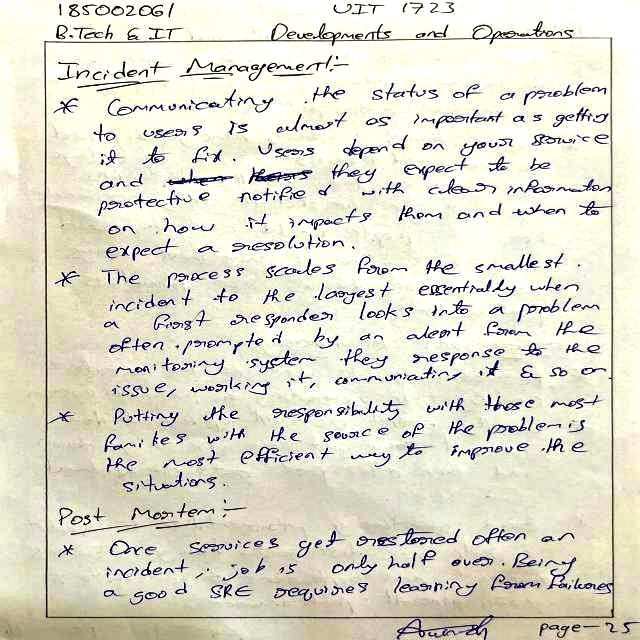 185002061 UIT 1723
B.Tech & IT Developments and Operations
Incident Management:-
* Communicating the status of a problem
to users is almost as important as getting
it to fix. Users depend on your service
and they expect to be
protective notified with clear information
on how it impacts them and when to
expect a resolution.
* The process scales from the smallest
incident to the largest essentially when
a first responder looks into a problem
often prompted by an alert from the
monitoring system they response to the
issue, working it, communicating it & so on
* Putting the responsibility with those most
with the source of the problem is
the most efficient way to improve the
situations.
Post Mortem:-
* One services get restored often an
incident, job is only half over. Being
a good SRE requires learning from failures
page-25